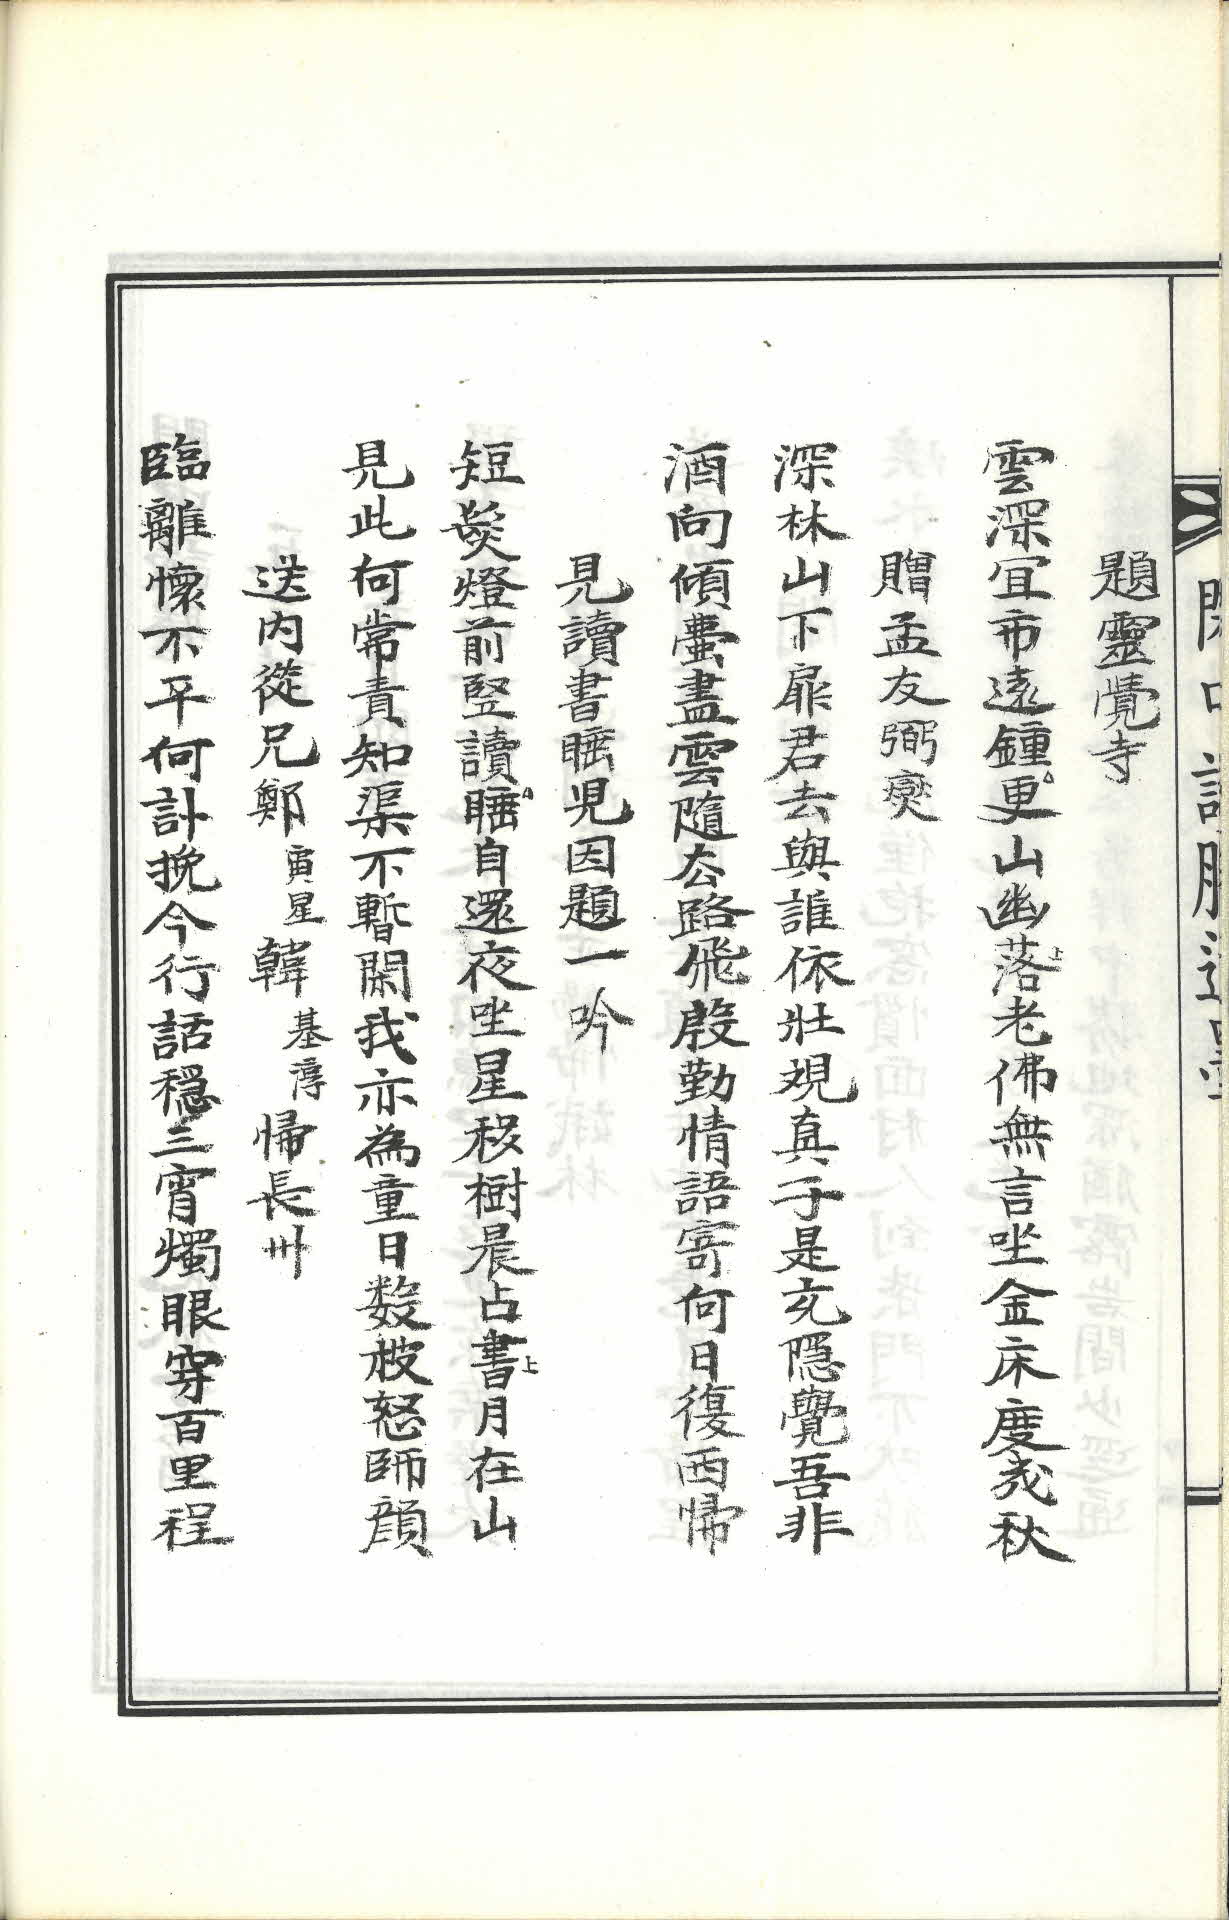 題靈覺寺
雲深宜市遠鍾更山幽落老佛無言坐金床度幾秋
贈孟友弼奭
深林山下扉君去與誰依壯覌真子是玄隱覺吾非
酒向傾壺盡雲隨太路飛殷勤情語寄何日復西帰
見讀書睡児因題一吟
短髮燈前竪讀睡自還夜坐星移樹晨占書上月在山
見此何常責知渠不暫閑我亦為童日数被怒師顔
送内從兄鄭寅星韓基淳帰長州
臨離懷不平何計挽今行話穩三宵燭眼穿百里程